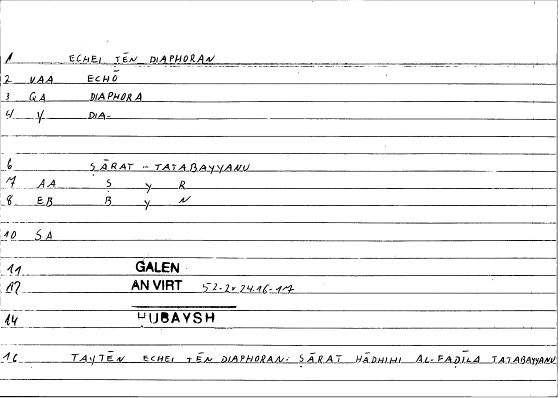 1 ECHEI TĒN DIAPHORAN
2 VAA ECHŌ
3 GA DIAPHORA
4 V DIA-
6 ṢĀRAT - TATABAYYANU
7 AA S y R
8 EB B y N
10 SA
11 GALEN
12 AN VIRT 52-2v 24.16-17
14 HUBAYSH
16 TAYTĒN ECHEI TĒN DIAPHORAN: ṢĀRAT HĀDHIHI AL-FAḌĪLA TATABAYYANU